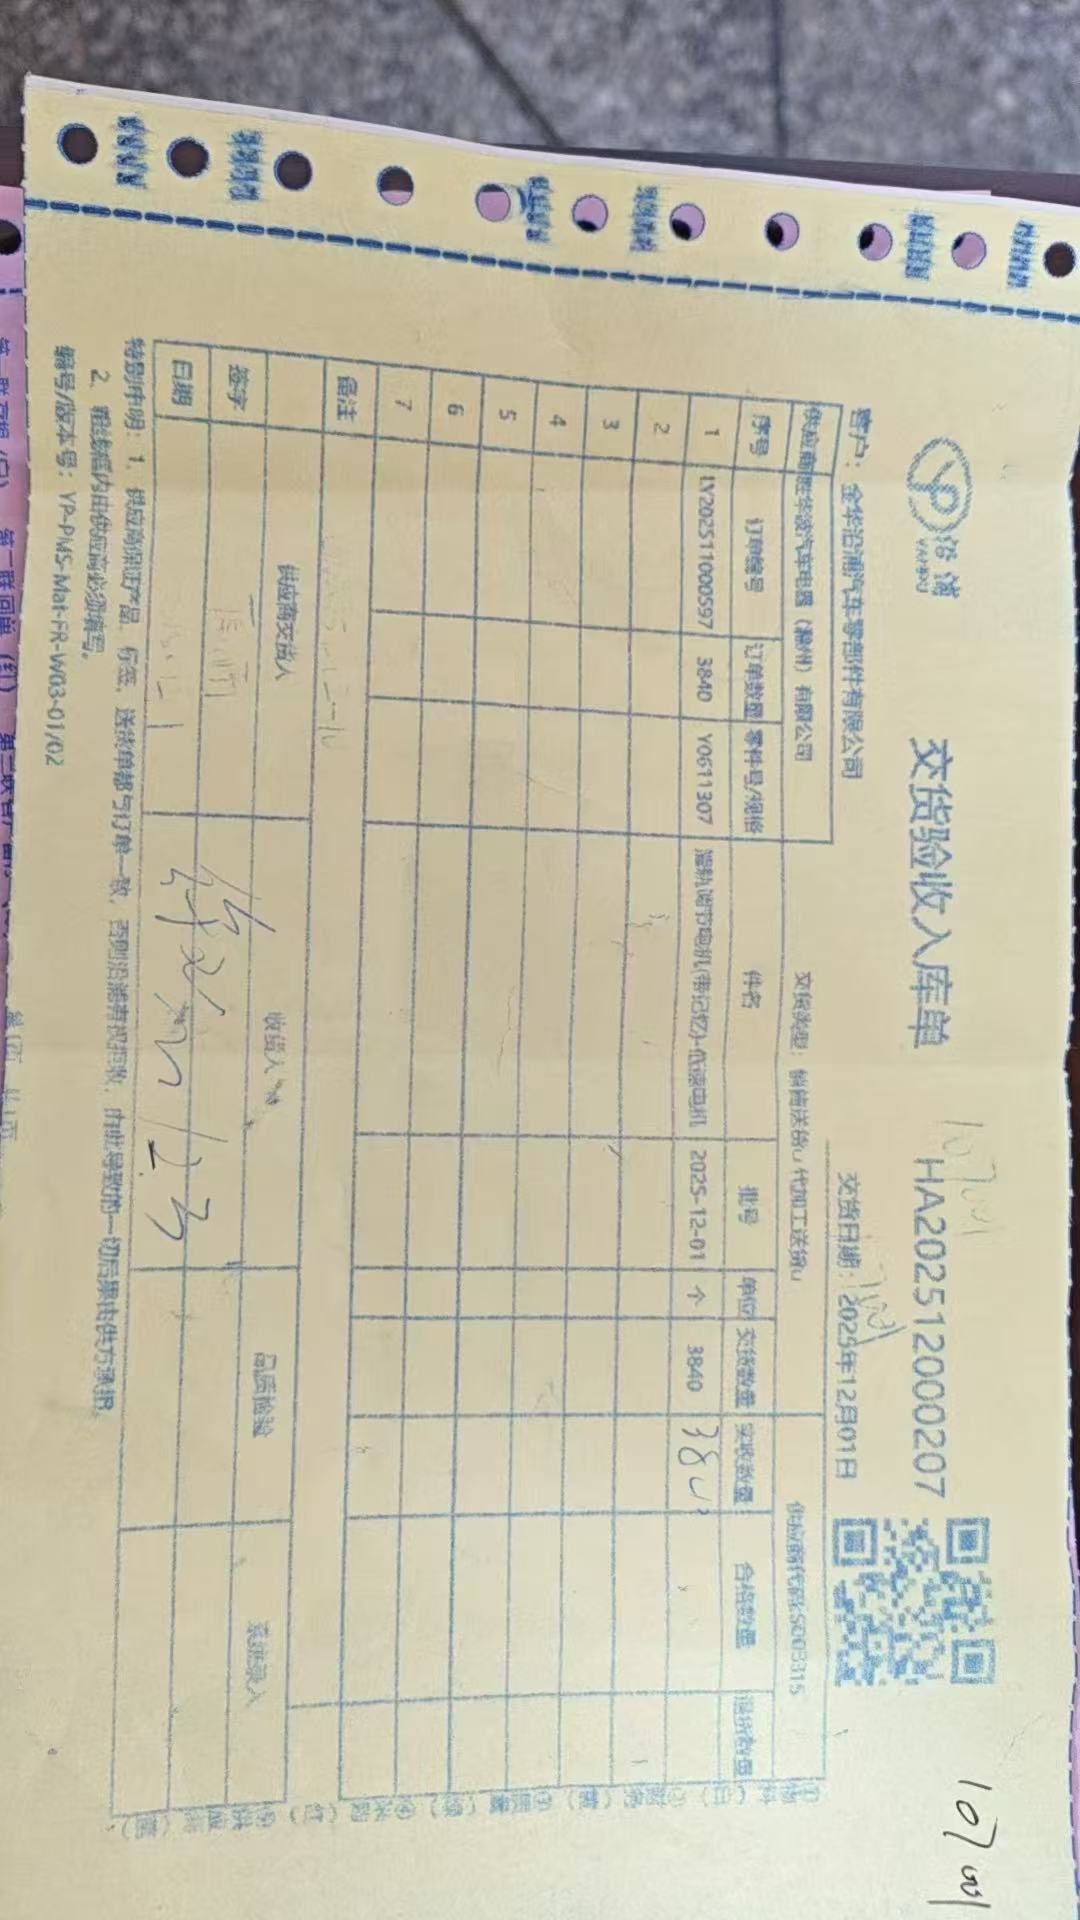 沿浦
YANPU
交货验收入库单
HA202512000207
客户：金华沿浦汽车零部件有限公司
交货日期：2025年12月01日
供应商 胜华波汽车电器（滁州）有限公司
交货类型：销售送货 代加工送货
供应商代码:S003315
序号 订单编号 订单数量 零件号/规格 件名 批号 单位 交货数量 实收数量 合格数量 退货数量
1 LY202511000597 3840 Y0611307 滑轨调节电机(带记忆)-低速电机 2025-12-01 个 3840
2
3
4
5
6
7
备注
供应商交货人 收货人 品质检验 系统录入
签字
日期 12.3
特别申明：1、供应商保证产品、标签、送货单都与订单一致，否则沿浦有权拒收，由此导致的一切后果由供方承担。
2、粗线框内由供应商必须填写。
编号/版本号：YP-PMS-Mat-FR-W03-01/02